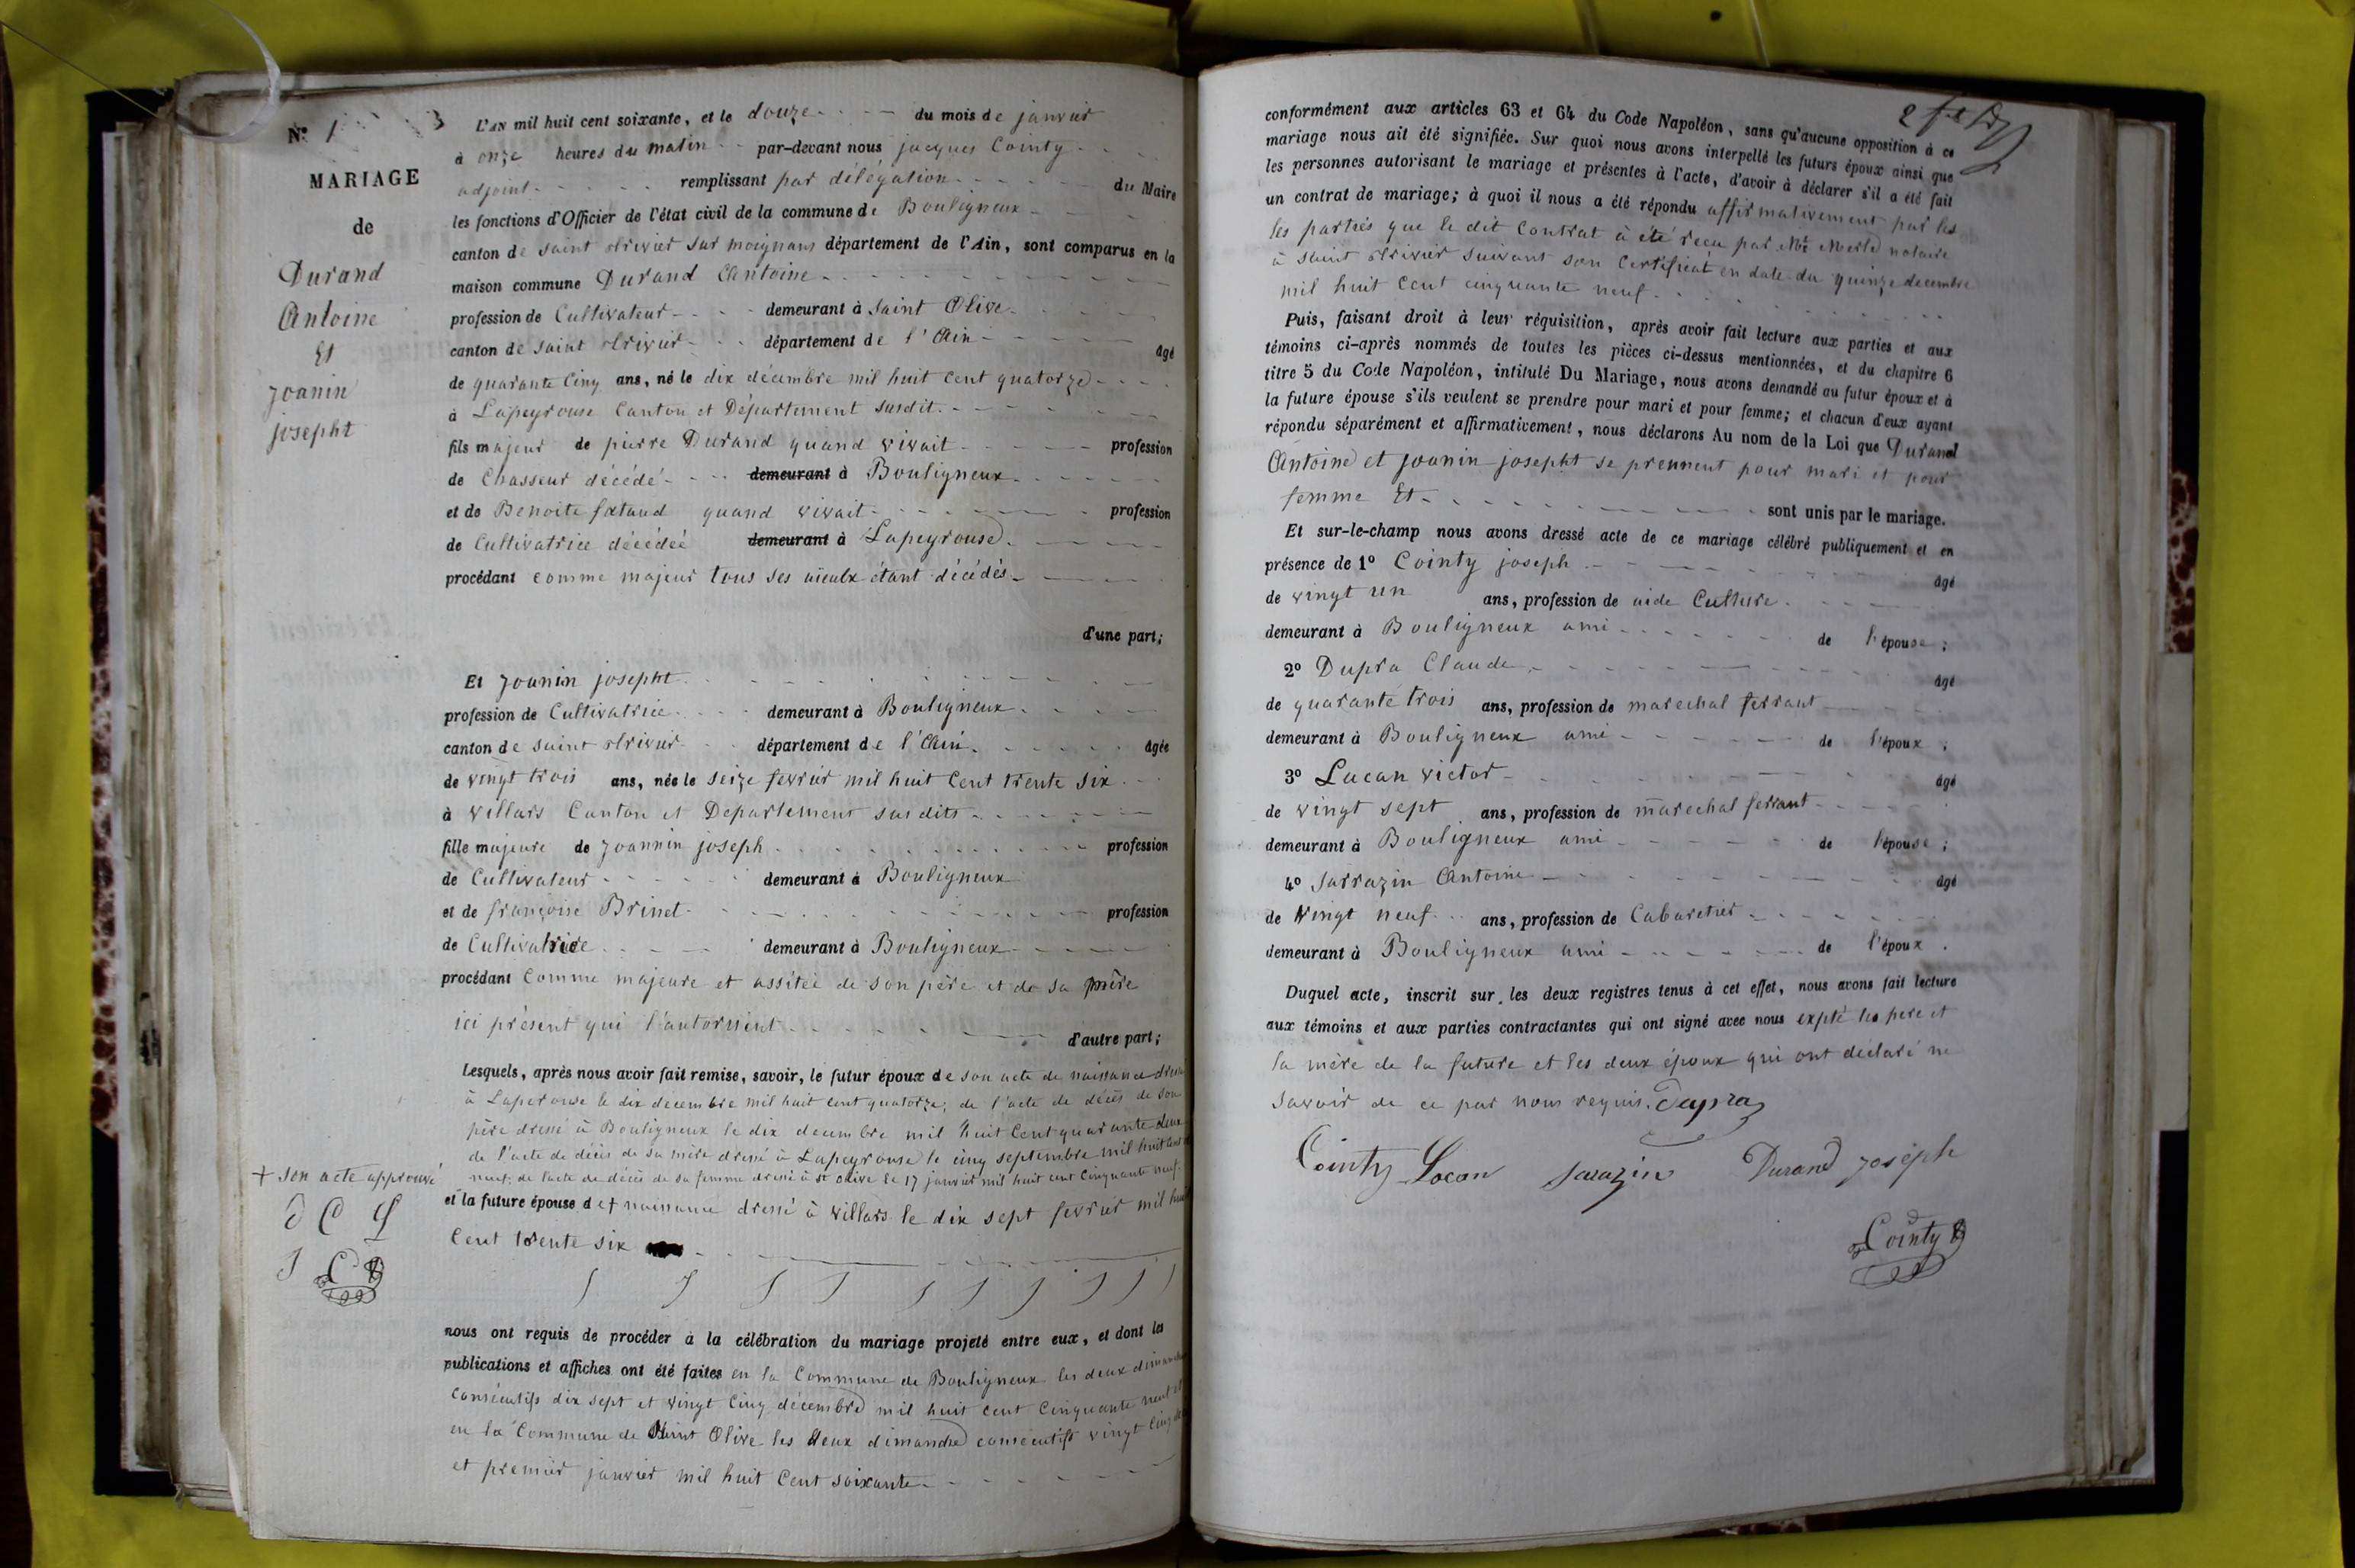 N.º 1
3
MARIAGE
de
Durand
Antoine
Et
joanin
josepht
L'AN mil huit cent soixante, et le douze du mois de janvier
à onze heures du matin par-devant nous jacques Cointy
adjoint remplissant par délégation du Maire
les fonctions d'Officier de l'état civil de la commune de Bouligneux
canton de saint trivier sur moignans département de l'Ain, sont comparus en la
maison commune Durand Antoine
profession de Cultivateur demeurant à saint Olive
canton de saint trivier département de l'Ain âgé
de quarante Cinq ans, né le dix décembre mil huit cent quatorze
à Lapeyrouse Canton et Département susdit
fils majeur de pierre Durand quand vivait profession
de Chasseur décédé demeurant à Bouligneux
et de Benoite quand vivait profession
de Cultivatrice décédée demeurant à Lapeyrouse
procédant comme majeur tous ses aieulx étant décédés
d'une part;
Et joanin josepht
profession de Cultivatrice demeurant à Bouligneux
canton de saint trivier département de l'Ain âgée
de vingt trois ans, née le seize fevrier mil huit Cent trente six
à villars Canton et Departement susdits
fille majeure de joannin joseph profession
de Cultivateur demeurant à Bouligneux
et de françoise Brinet profession
de Cultivatrice demeurant à Bouligneux
procédant Comme majeure et assitée de son père et de sa mère
ici présent qui l'autorisent d'autre part;
Lesquels, après nous avoir fait remise, savoir, le futur époux de son acte de naissance dressé
à Laperouse le dix decembre mil huit cent quatorze; de l'acte de décès de son
père dressé à Bouligneux le dix decembre mil huit Cent quarante deux
de l'acte de décès de sa mère dressé à Lapeyrouse le cinq septembre mil huit Cent
neuf; de l'acte de décès de sa femme dressé à st olive le 17 janvier mil huit cent Cinquante neuf
+ son acte approuvé
et la future épouse de + naissance dressé à villars le dix sept fevrier mil huit
Cent trente six
nous ont requis de procéder à la célébration du mariage projeté entre eux, et dont les
publications et affiches ont été faites en la Commune de Bouligneux les deux dimanches
consécutifs dix sept et vingt Cinq décembre mil huit cent Cinquante neuf et
en la Commune de Saint Olive les deux dimanche consécutifs vingt Cinq
et premier janvier mil huit Cent soixante
2
conformément aux articles 63 et 64 du Code Napoléon, sans qu'aucune opposition à ce
mariage nous ait été signifiée. Sur quoi nous avons interpellé les futurs époux ainsi que
les personnes autorisant le mariage et présentes à l'acte, d'avoir à déclarer s'il a été fait
un contrat de mariage; à quoi il nous a été répondu affirmativement par les
les parties que le dit Contrat à été recu par Me Merle notaire
à saint trivier suivant son Certificat en date du quinze decembre
mil huit Cent cinquante neuf
Puis, faisant droit à leur réquisition, après avoir fait lecture aux parties et aux
témoins ci-après nommés de toutes les pièces ci-dessus mentionnées, et du chapitre 6
titre 5 du Code Napoléon, intitulé Du Mariage, nous avons demandé au futur époux et à
la future épouse s'ils veulent se prendre pour mari et pour femme; et chacun d'eux ayant
répondu séparément et affirmativement, nous déclarons Au nom de la Loi que Durand
Antoine et joanin josepht se prennent pour mari et pour
femme Et sont unis par le mariage.
Et sur-le-champ nous avons dressé acte de ce mariage célébré publiquement et en
présence de 1º Cointy joseph âgé
de vingt un ans, profession de aide Culture
demeurant à Bouligneux ami de l'épouse;
2º Dupra Claude âgé
de quarante trois ans, profession de marechal ferrant
demeurant à Bouligneux ami de l'époux;
3º Lucan victor âgé
de vingt sept ans, profession de marechal ferrant
demeurant à Bouligneux ami de l'épouse;
4º Sarrazin Antoine âgé
de vingt neuf ans, profession de Cabaretier
demeurant à Bouligneux ami de l'époux.
Duquel acte, inscrit sur les deux registres tenus à cet effet, nous avons fait lecture
aux témoins et aux parties contractantes qui ont signé avec nous expté le père et
la mère de la future et les deux époux qui ont déclaré ne
savoir de ce par nous requis. Dupra
Cointy Locan sarazin Durand joseph
Cointy